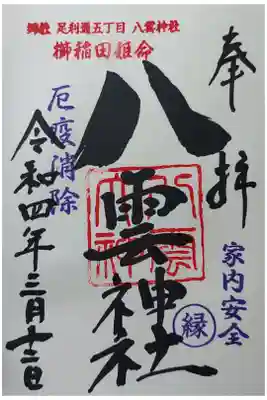 御社 足利通五丁目 八雲神社
櫛稲田姫命
奉拝
八雲神社
厄疫消除
令和四年三月十二日
家内安全
縁